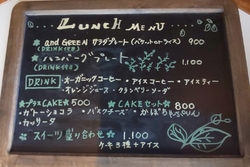 Lunch MENU
and GREEN サラダプレート (バケットorライス) 900
(DRINK付き)
ハンバーグプレート 1,100
(DRINK付き)
DRINK ・オーガニックコーヒー ・アイスコーヒー ・アイスティー
・オレンジジュース ・クランベリーソーダ
プラスCAKE 500 CAKEセット 800
・ガトーショコラ ・バスクチーズ ・かぼちゃ
・カッサータ
スイーツ盛り合わせ 1,100
ケーキ3種+アイス